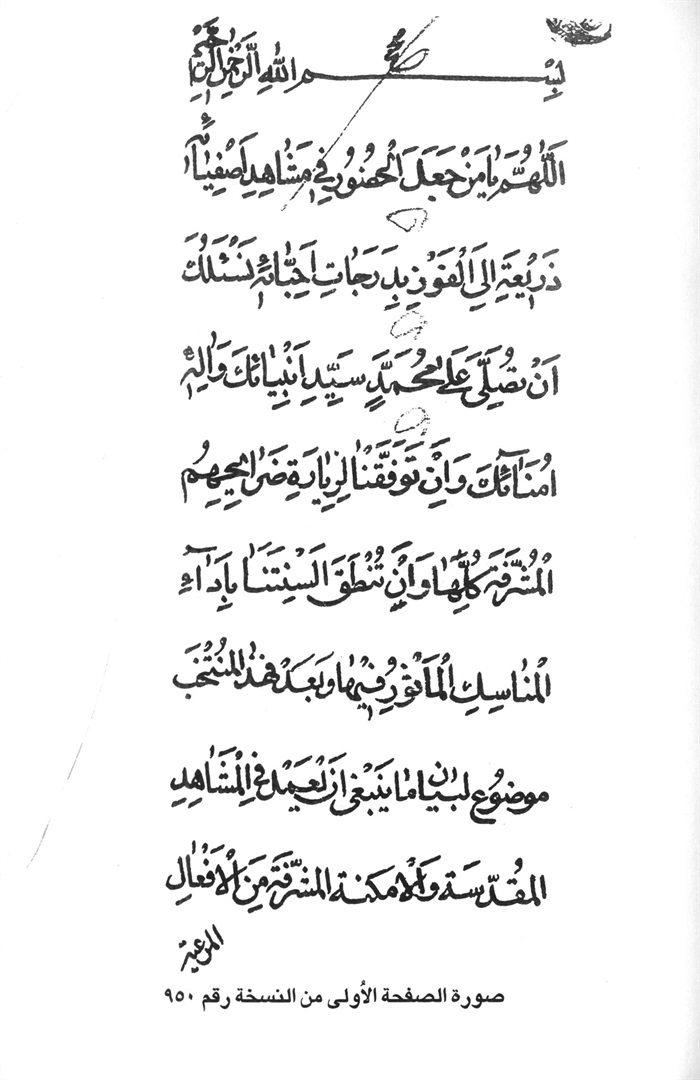 بسم الله الرحمن الرحيم
اَللّٰهُمَّ يا مَنْ جَعَلَ الْحُضُورَ فِي مَشاهِدِ اَصْفِيائِهِ
ذَرِيعَةً اِلَى الْفَوْزِ بِدَرَجاتِ اَحِبّائِهِ نَسْئَلُكَ
اَنْ تُصَلِّيَ عَلىٰ مُحَمَّدٍ سَيِّدِ اَنْبِيائِكَ وَالِهِ
اُمَنائِكَ وَاَنْ تُوَفِّقَنا لِزِيارَةِ ضَرايِحِهِمُ
الْمُشَرَّفَةِ كُلِّها وَاَنْ تُنْطِقَ اَلْسِنَتَنا بِاَداءِ
الْمَناسِكِ الْمَأْثُورِ فِيها وَبَعْدُ فَهٰذَا الْمُنْتَخَبُ
موضوع لبيان ما ينبغى ان يُعمَل فى الْمَشاهِدِ
المُقَدَّسَة وَالامكنة المُشَرَّفَةِ مِنَ الْاَفْعالِ
المرعية
صورة الصفحة الأولى من النسخة رقم ٩٥٠